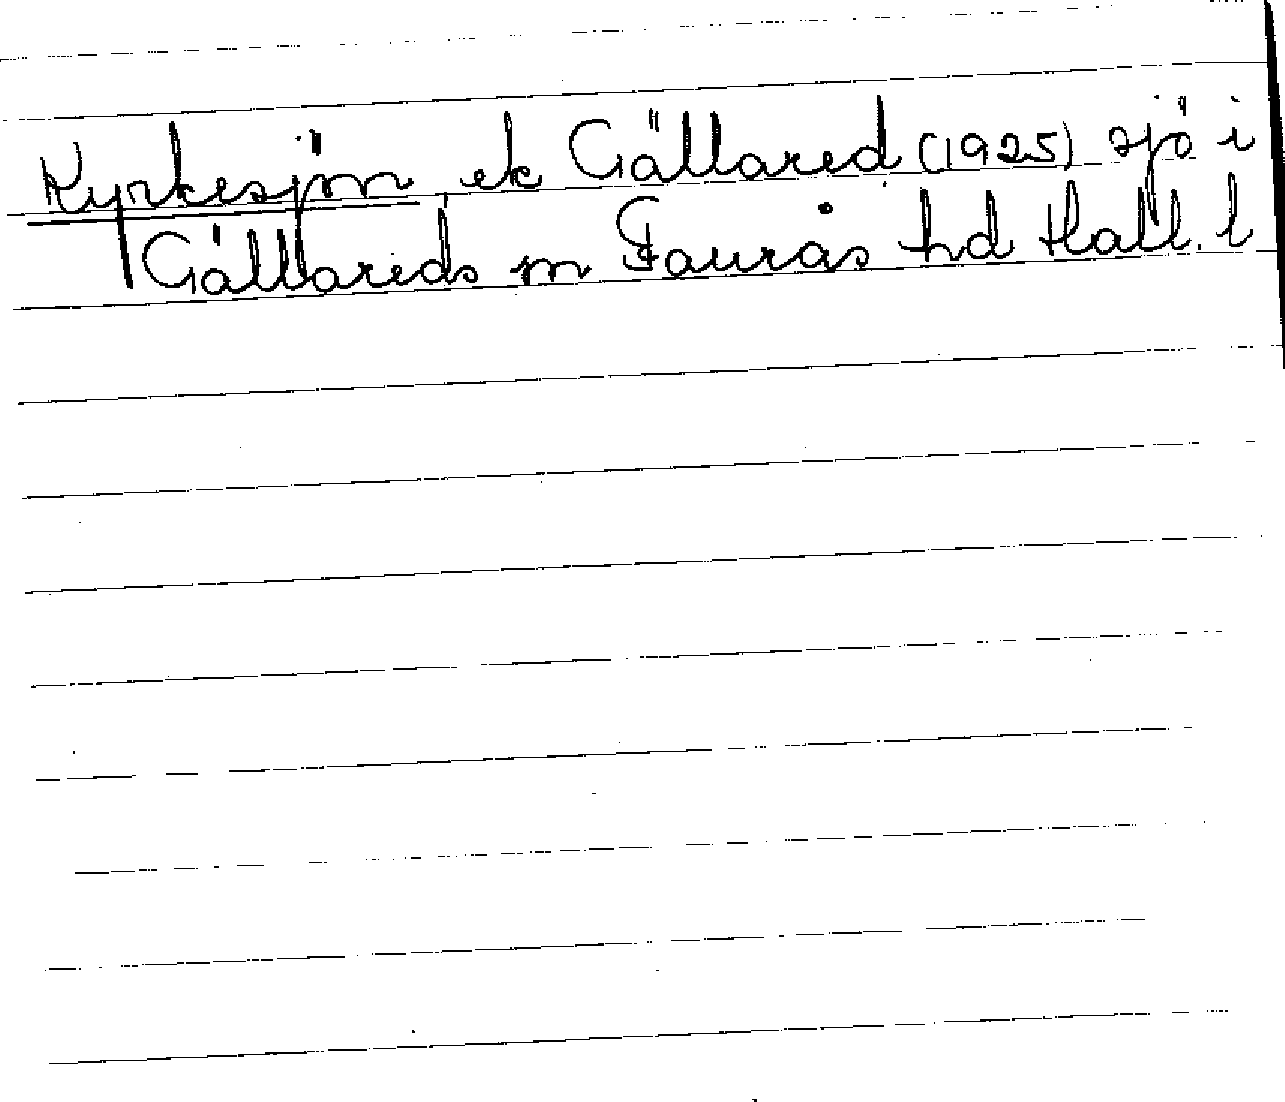 Kyrkesjön, ek Gällared (1925) sjö i
Gällareds sn Faurås hd Hall. l